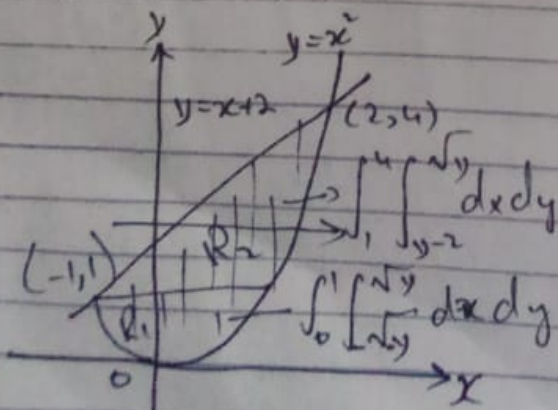 y
y=x²
y=x+2
(2,4)
∫₁⁴ ∫_{y-2}^{√y} dx dy
R₂
(-1,1)
R₁
∫₀¹ ∫_{√y}^{√y} dx dy
0
x